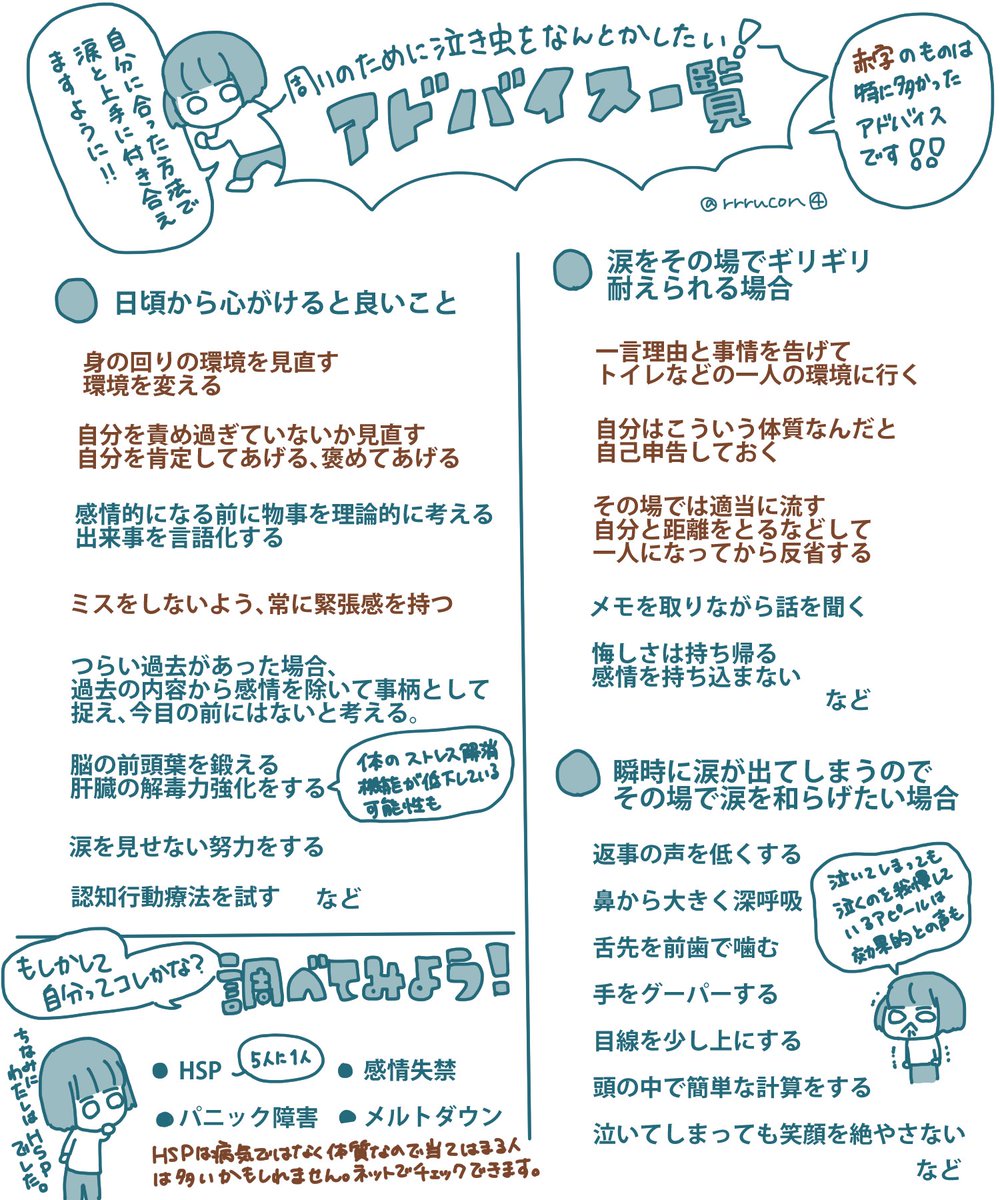 自分に合った方法で
涙と上手に付き合え
ますように!!
周りのために泣き虫をなんとかしたい!
アドバイス一覧
赤字のものは
特に多かった
アドバイス
です!!
@rrrucon④
日頃から心がけると良いこと
身の回りの環境を見直す
環境を変える
自分を責め過ぎていないか見直す
自分を肯定してあげる、褒めてあげる
感情的になる前に物事を理論的に考える
出来事を言語化する
ミスをしないよう、常に緊張感を持つ
つらい過去があった場合、
過去の内容から感情を除いて事柄として
捉え、今目の前にはないと考える。
脳の前頭葉を鍛える
肝臓の解毒力強化をする
体のストレス解消
機能が低下している
可能性も
涙を見せない努力をする
認知行動療法を試す など
涙をその場でギリギリ
耐えられる場合
一言理由と事情を告げて
トイレなどの一人の環境に行く
自分はこういう体質なんだと
自己申告しておく
その場では適当に流す
自分と距離をとるなどして
一人になってから反省する
メモを取りながら話を聞く
悔しさは持ち帰る
感情を持ち込まない
など
瞬時に涙が出てしまうので
その場で涙を和らげたい場合
返事の声を低くする
鼻から大きく深呼吸
舌先を前歯で噛む
手をグーパーする
目線を少し上にする
頭の中で簡単な計算をする
泣いてしまっても笑顔を絶やさない
など
泣いてしまっても
泣くのを我慢して
いるアピールは
効果的との声も
もしかして
自分ってコレかな?
調べてみよう!
ちなみに
わたしはHSP
でした。
● HSP
5人に1人
● 感情失禁
● パニック障害
● メルトダウン
HSPは病気ではなく体質なので当てはまる人
は多いかもしれません。ネットでチェックできます。